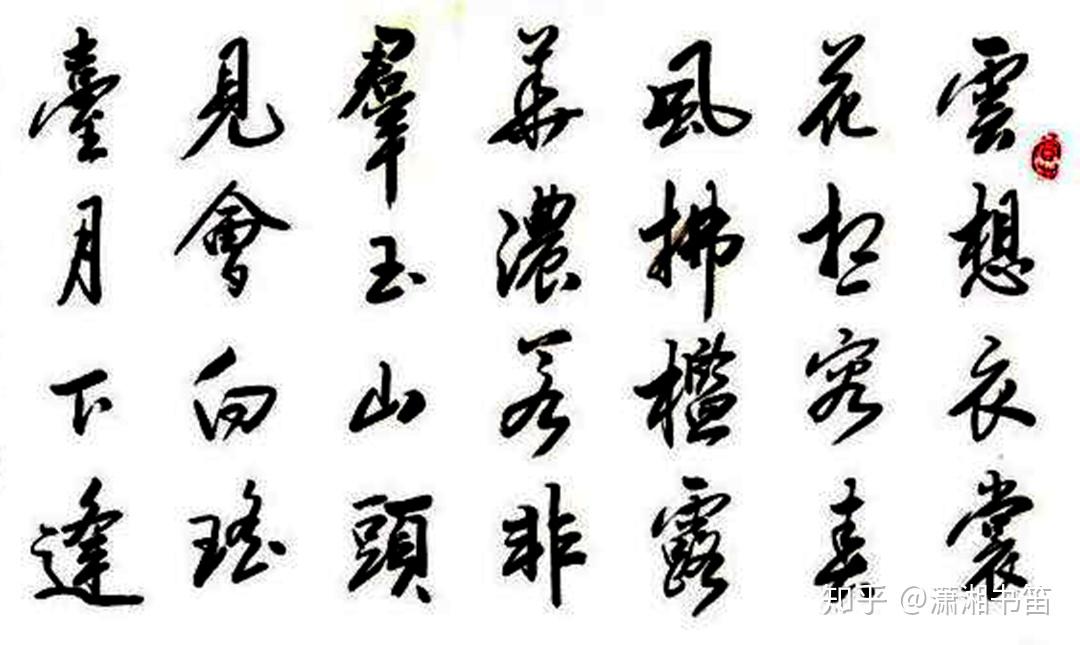 雲想衣裳
花想容春
風拂檻露
華濃若非
羣玉山頭
見會向瑤
臺月下逢
知乎 @潇湘书笛